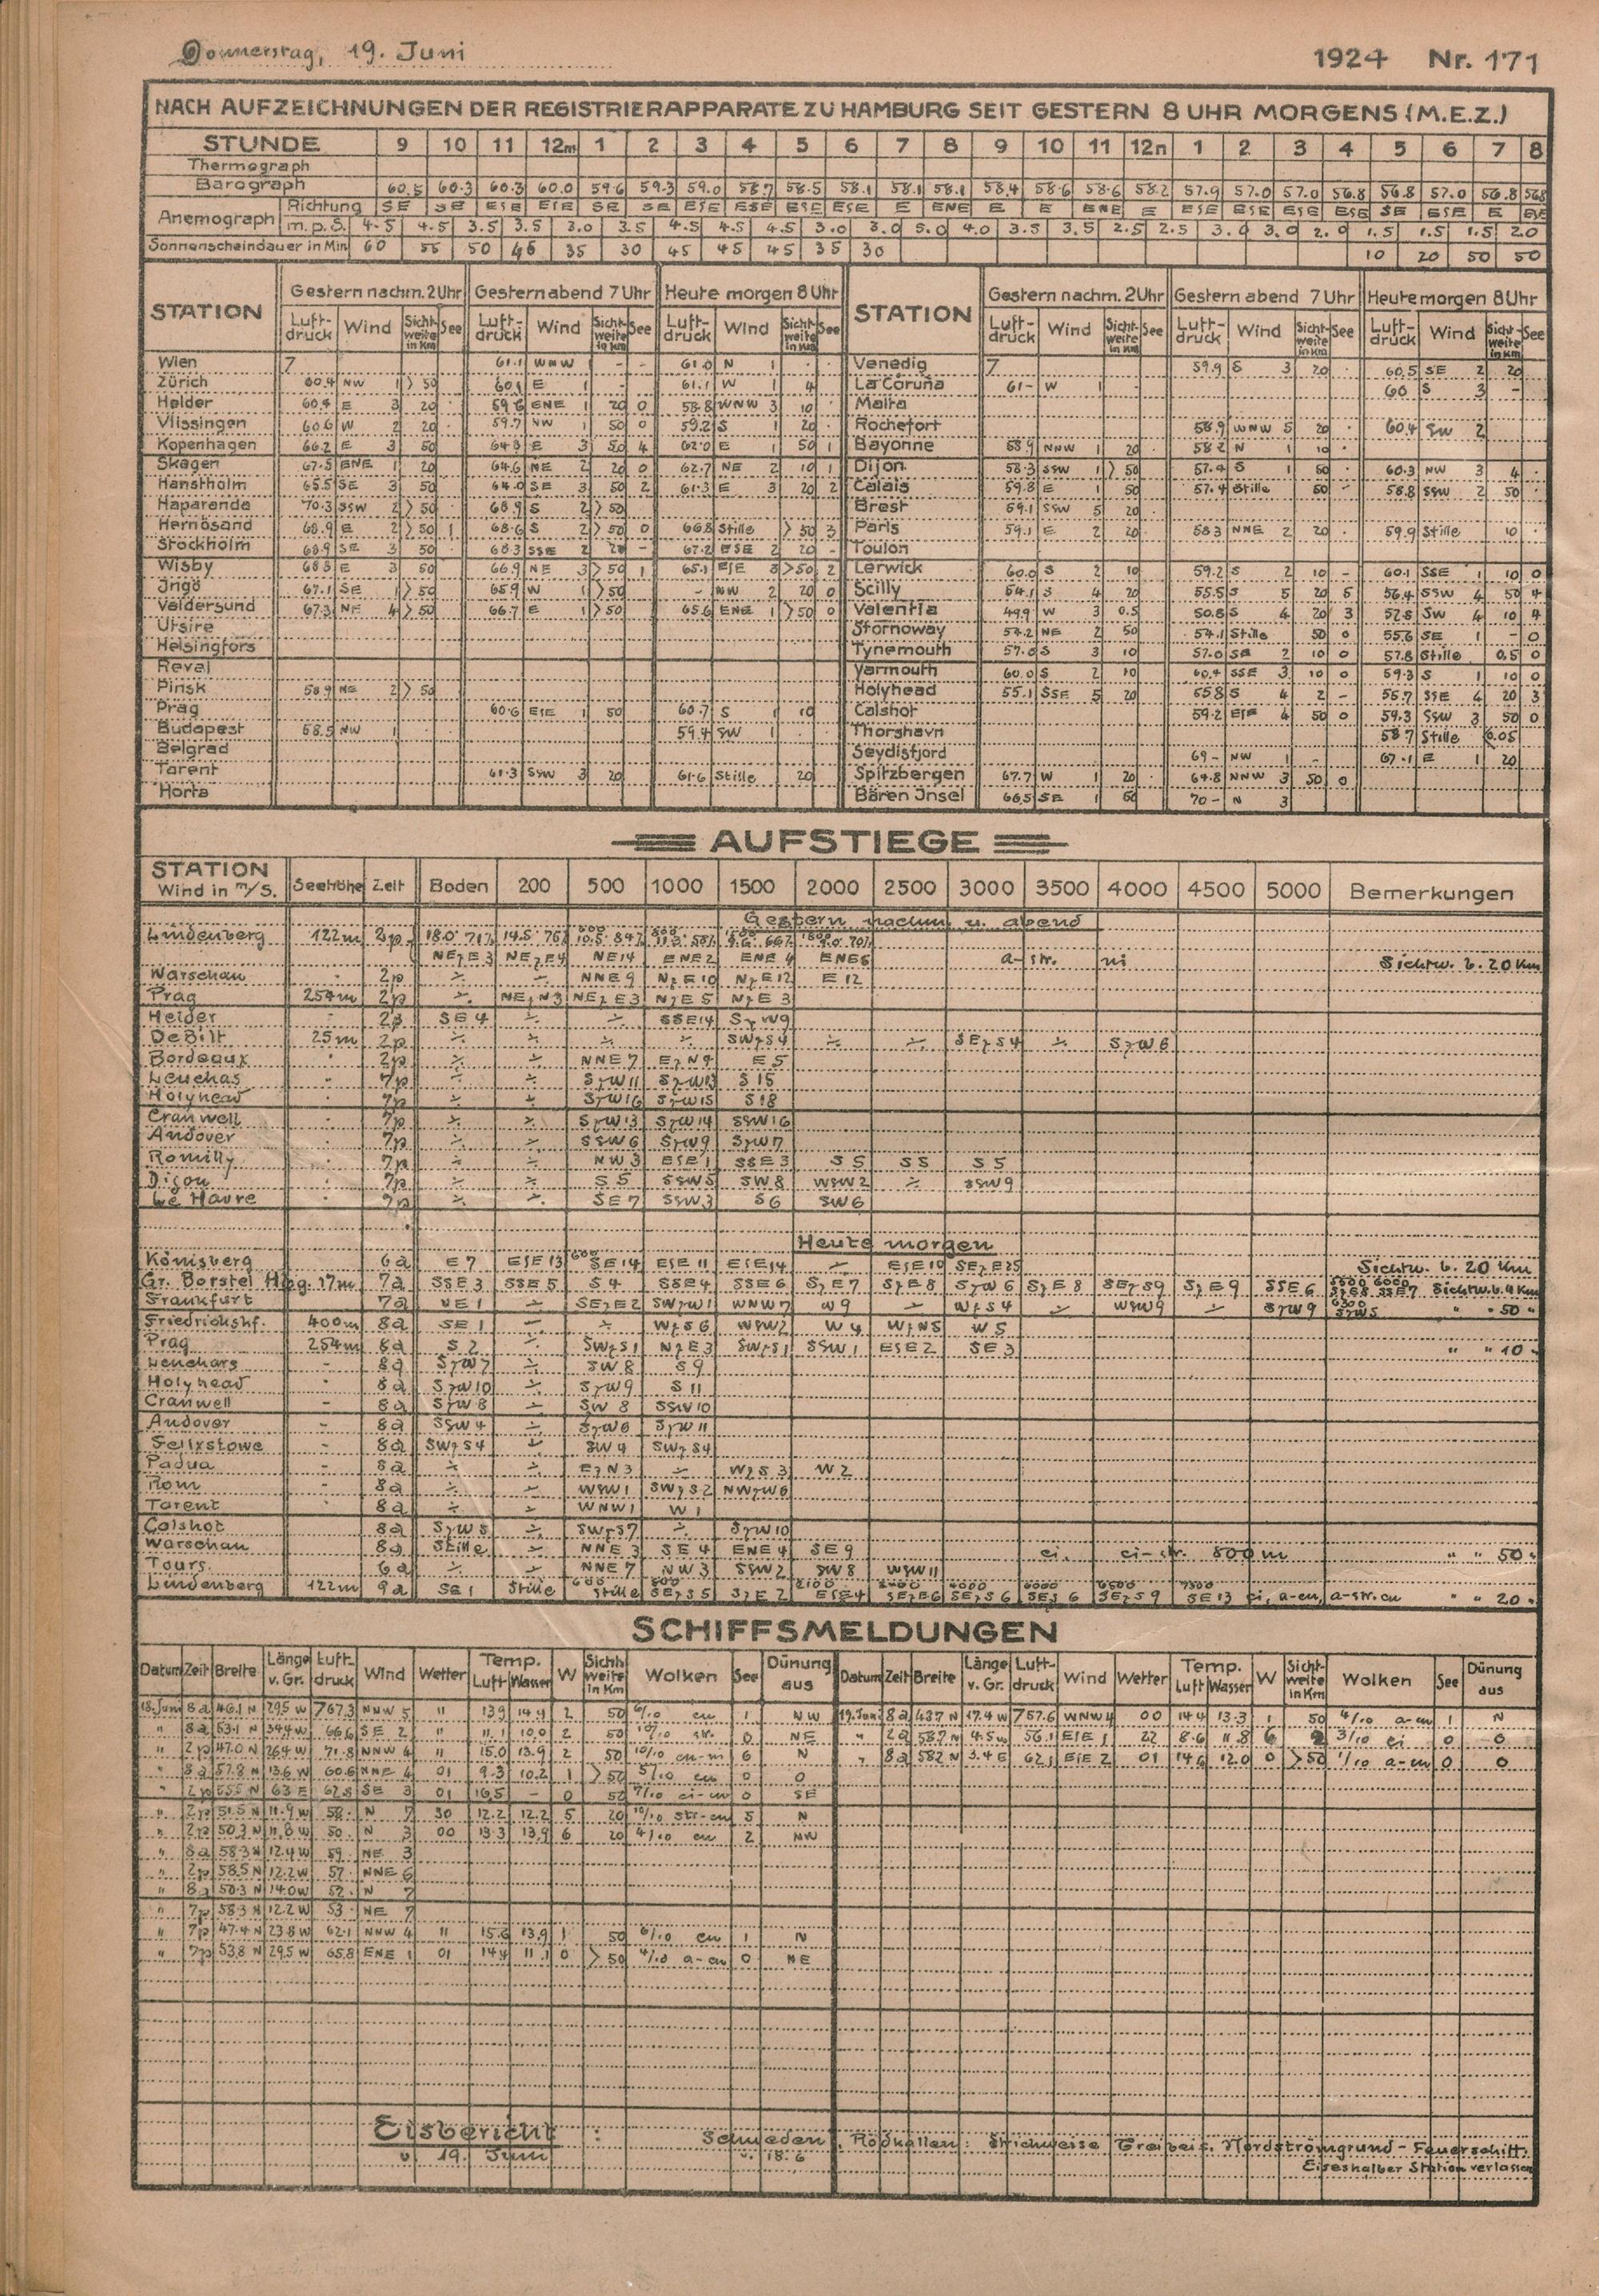 Donnerstag, 19. Juni 1924 Nr. 171
NACH AUFZEICHNUNGEN DER REGISTRIERAPPARATE ZU HAMBURG SEIT GESTERN 8 UHR MORGENS (M.E.Z.)
STUNDE 9 10 11 12m 1 2 3 4 5 6 7 8 9 10 11 12n 1 2 3 4 5 6 7 8
Thermograph
Barograph 60.5 60.3 60.3 60.0 59.6 59.3 59.0 58.7 58.5 58.1 58.1 58.1 58.4 58.6 58.6 58.2 57.9 57.0 57.0 56.8 56.8 57.0 56.8 568
Anemograph Richtung SE SE ESE ESE SE SE ESE ESE ESE ESE E ENE E E ENE E ESE ESE ESE ESE SE ESE E ESE
m.p.S. 4.5 4.5 3.5 3.5 3.0 3.5 4.5 4.5 4.5 3.0 3.0 5.0 4.0 3.5 3.5 2.5 2.5 3.0 3.0 2.0 1.5 1.5 1.5 2.0
Sonnenscheindauer in Min 60 55 50 46 35 30 45 45 45 35 30 10 20 50 50
STATION Gestern nachm. 2 Uhr Gestern abend 7 Uhr Heute morgen 8 Uhr STATION Gestern nachm. 2 Uhr Gestern abend 7 Uhr Heute morgen 8 Uhr
Luft-druck Wind Sicht-weite in Km See Luft-druck Wind Sicht-weite in Km See Luft-druck Wind Sicht-weite in Km See Luft-druck Wind Sicht-weite in Km See Luft-druck Wind Sicht-weite in Km See Luft-druck Wind Sicht-weite in Km See
Wien 7 61.1 WNW 1 - - 61.0 N 1 Venedig 7 59.9 S 3 20 60.5 SE 2 20
Zürich 60.4 NW 1 >50 60.1 E 1 - 61.1 W 1 4 La Coruña 61- W 1 60 S 3 -
Helder 60.4 E 3 20 59.6 ENE 1 20 0 58.8 WNW 3 10 Malta
Vlissingen 60.6 W 2 20 59.7 NW 1 50 0 59.2 S 1 20 Rochefort 58.9 WNW 5 20 60.4 SW 2
Kopenhagen 66.2 E 3 50 64.3 E 3 50 4 62.0 E 1 50 1 Bayonne 58.9 NNW 1 20 58.2 N 1 10
Skagen 67.5 ENE 1 20 64.6 NE 2 20 0 62.7 NE 2 10 1 Dijon 58.3 SSW 1 >50 57.4 S 1 50 60.3 NW 3 4
Hanstholm 65.5 SE 3 50 64.0 SE 3 50 2 61.3 E 3 20 2 Calais 59.8 E 1 50 57.4 Stille 50 - 58.8 SSW 2 50
Haparanda 70.3 SSW 2 >50 68.9 S 2 >50 Brest 59.1 SSW 5 20
Hernösand 68.9 E 2 >50 1 68.6 S 2 >50 0 66.8 Stille >50 3 Paris 59.1 E 2 20 58.3 NNE 2 20 59.9 Stille 10
Stockholm 68.9 SE 3 50 68.3 SSE 2 20 - 67.2 ESE 2 20 - Toulon
Wisby 68.8 E 3 50 66.9 NE 3 >50 1 65.1 ESE 3 >50 2 Lerwick 60.0 S 2 10 59.2 S 2 10 - 60.1 SSE 1 10 0
Jngö 67.1 SE 1 >50 65.9 W 1 >50 - NW 2 20 0 Scilly 54.1 S 4 20 55.5 S 5 20 5 56.4 SSW 4 50 4
Valdersund 67.3 NE 4 >50 66.7 E 1 >50 65.6 ENE 1 >50 0 Valentia 49.9 W 3 0.5 50.8 S 4 20 3 52.8 SW 4 10 4
Utsire Stornoway 57.2 NE 2 50 57.1 Stille 50 0 55.6 SE 1 - 0
Helsingfors Tynemouth 57.8 S 3 10 57.0 SE 2 10 0 57.8 Stille 0.5 0
Reval Yarmouth 60.0 S 2 10 60.4 SSE 3 10 0 59.3 S 1 10 0
Pinsk 58.9 NE 2 >50 Holyhead 55.1 SSE 5 20 55.8 S 4 2 - 55.7 SSE 4 20 3
Prag 60.6 ESE 1 50 60.7 S 1 10 Calshot 59.2 ESE 4 50 0 59.3 SSW 3 50 0
Budapest 58.5 NW 1 59.4 SW 1 Thorshavn 58.7 Stille 0.05
Belgrad Seydisfjord 69- NW 1 - 67.1 E 1 20
Tarent 61.3 SSW 3 20 61.6 Stille 20 Spitzbergen 67.7 W 1 20 64.8 NNW 3 50 0
Horta Bären Jnsel 66.5 SE 1 50 70- N 3
AUFSTIEGE
STATION Wind in m/s. Seehöhe Zeit Boden 200 500 1000 1500 2000 2500 3000 3500 4000 4500 5000 Bemerkungen
Gestern nachm. u. abend
Lindenberg 122m 3p 18.0 71% 14.5 76%
NEzE 3 NEzE4 NE14 ENE2 ENE 4 ENE6 a-str. ni Sichtw. b. 20 Km
Warschau 2p NNE 9 NzE 10 NzE 12 E 12
Prag 254m 2p NEzN3 NEzE3 NzE 5 NzE 3
Helder 2p SE 4 SSE14 SzW9
De Bilt 25m 2p SWzS4 SEzS4 SzW6
Bordeaux 2p NNE 7 EzN9 E 5
Leuchas 7p SzW11 SzW13 S 15
Holyhead 7p SzW16 SzW15 S18
Cranwell 7p SzW13 SzW14 SSW16
Andover 7p SSW6 SzW9 SzW7
Romilly 7p NW 3 ESE 1 SSE 3 S 5 S5 S 5
Dijon 7p S 5 SSW5 SW 8 WSW2 SSW9
Le Havre 7p SE 7 SSW3 S6 SW6
Heute morgen
Könisberg 6a E 7 ESE 13 600 SE14 ESE 11 ESE14 ESE10 SEzE25 Sichtw. b. 20 Km
Gr. Borstel Hbg. 17m 7a SSE3 SSE5 S4 SSE4 SSE6 SzE7 SzE8 SzW6 SzE8 SEzS9 SzE9 SSE6 5500 6000 SzE8 SSE7 Sichtw. b. 4 Km
Frankfurt 7a NE1 SEzE2 SWzW1 WNW7 W9 WzS4 WSW9 SzW9 6300 SzW5 " " 50 "
Friedrichshf. 400m 8a SE 1 WzS6 WSW2 W4 WzN5 W5
Prag 254m 8a S 2 SWzS1 NzE3 SWzS1 SSW1 ESE2 SE3 " " 10 "
Leuchars 8a SzW7 SW 8 S9
Holyhead 8a SzW10 SzW9 S 11
Cranwell 8a SzW8 SW 8 SSW10
Andover 8a SSW4 SzW6 SzW11
Felixstowe 8a SWzS4 SW4 SWzS4
Padua 8a EzN3 WzS3 W2
Rom 8a WSW1 SWzS2 NWzW6
Tarent 8a WNW1 W1
Calshot 8a SzW5 SWzS7 SzW10
Warschau 8a Stille NNE 3 SE 4 ENE 4 SE 9 ci. ci-str. 800m " " 50 "
Tours. 6a NNE 7 NW 3 SSW2 SW8 WSW11
Lindenberg 122m 9a SE1 Stille 600 Stille 800 SEzS5 SzE2 2100 ESE4 SEzE6 SEzS6 SEzS6 SEzS9 SE13 ci, a-cu, a-str.cu " " 20 "
SCHIFFSMELDUNGEN
Datum Zeit Breite Länge v. Gr. Luft-druck Wind Wetter Temp. Luft Wasser W Sicht-weite in Km Wolken See Dünung aus Datum Zeit Breite Länge v. Gr. Luft-druck Wind Wetter Temp. Luft Wasser W Sicht-weite in Km Wolken See Dünung aus
18. Juni 8a 46.1 N 29.5 W 767.3 NNW 5 " 13.9 14.9 2 50 6/10 cu 1 NW 19. Juni 8a 43.7 N 17.4 W 757.6 WNW4 00 14.4 13.3 1 50 4/10 a-cu 1 N
" 8a 53.1 N 34.4 W 66.6 SE 2 " 11.1 10.0 2 50 10/10 str. 0 NE " 2a 58.7 N 4.5 W 56.1 ESE 1 22 8.6 11.8 6 2 3/10 ci 0 0
" 2p 47.0 N 26.4 W 71.8 NNW 4 " 15.0 13.9 2 50 10/10 cu-ni 6 N " 8a 58.2 N 3.4 E 62.1 ESE 2 01 14.6 12.0 0 >50 1/10 a-cu 0 0
" 8a 57.8 N 13.6 W 60.6 NNE 4 01 9.3 10.2 1 >50 5/10 cu 0 0
" 2p 55.5 N 6.3 E 62.8 SE 3 01 16.5 - 0 50 7/10 ci-cu 0 SE
" 2p 51.5 N 11.9 W 58. N 7 30 12.2 12.2 5 20 10/10 str-cu 5 N
" 2p 50.3 N 11.8 W 50. N 3 00 13.3 13.9 6 20 4/10 cu 2 NW
" 8a 58.3 N 12.4 W 59 NE 3
" 2p 58.5 N 12.2 W 57 NNE 6
" 8a 50.3 N 14.0 W 52. N 7
" 7p 58.3 N 12.2 W 53 NE 7
" 7p 47.4 N 23.8 W 62.1 NNW 4 " 15.6 13.9 1 50 6/10 cu 1 N
" 7p 53.8 N 29.5 W 65.8 ENE 1 01 14.4 11.1 0 >50 4/10 a-cu 0 NE
Eisbericht : Schweden, Rödkallen: Strichweise Treibeis. Nordströmgrund-Feuerschiff:
v. 19. Juni v. 18.6 Eiseshalber Station verlassen